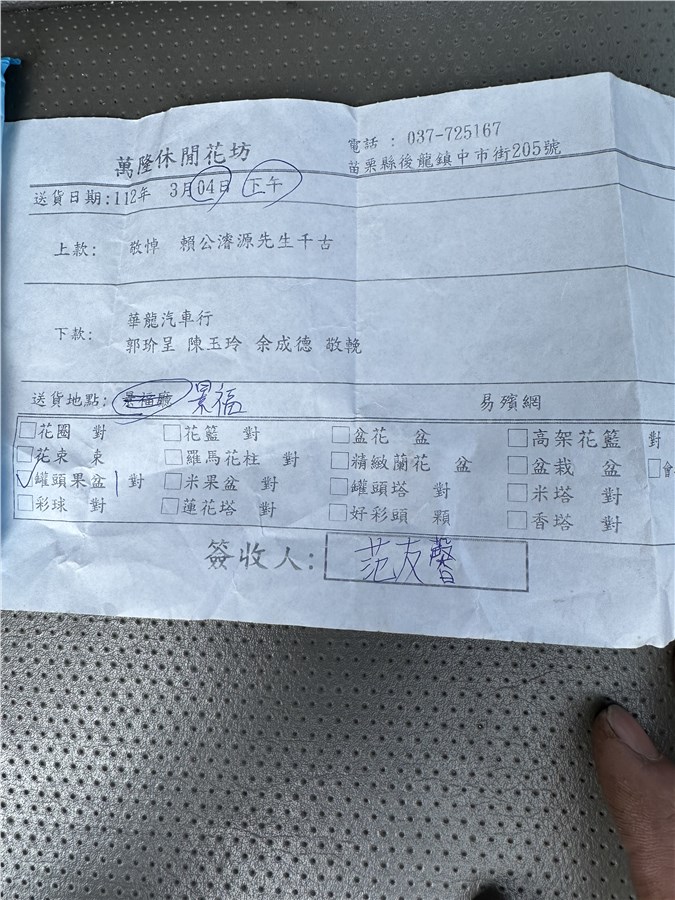 萬隆休閒花坊
電話 : 037-725167
苗栗縣後龍鎮中市街205號
送貨日期:112年 3月04日 下午
上款: 敬悼 賴公濬源先生千古
下款: 華龍汽車行
郭玠呈 陳玉玲 余成德 敬輓
送貨地點: 景福廳 景福 易殯網
花圈 對 花籃 對 盆花 盆 高架花籃 對
花束 束 羅馬花柱 對 精緻蘭花 盆 盆栽 盆 會
罐頭果盆 1 對 米果盆 對 罐頭塔 對 米塔 對
彩球 對 蓮花塔 對 好彩頭 顆 香塔 對
簽收人: 范友馨